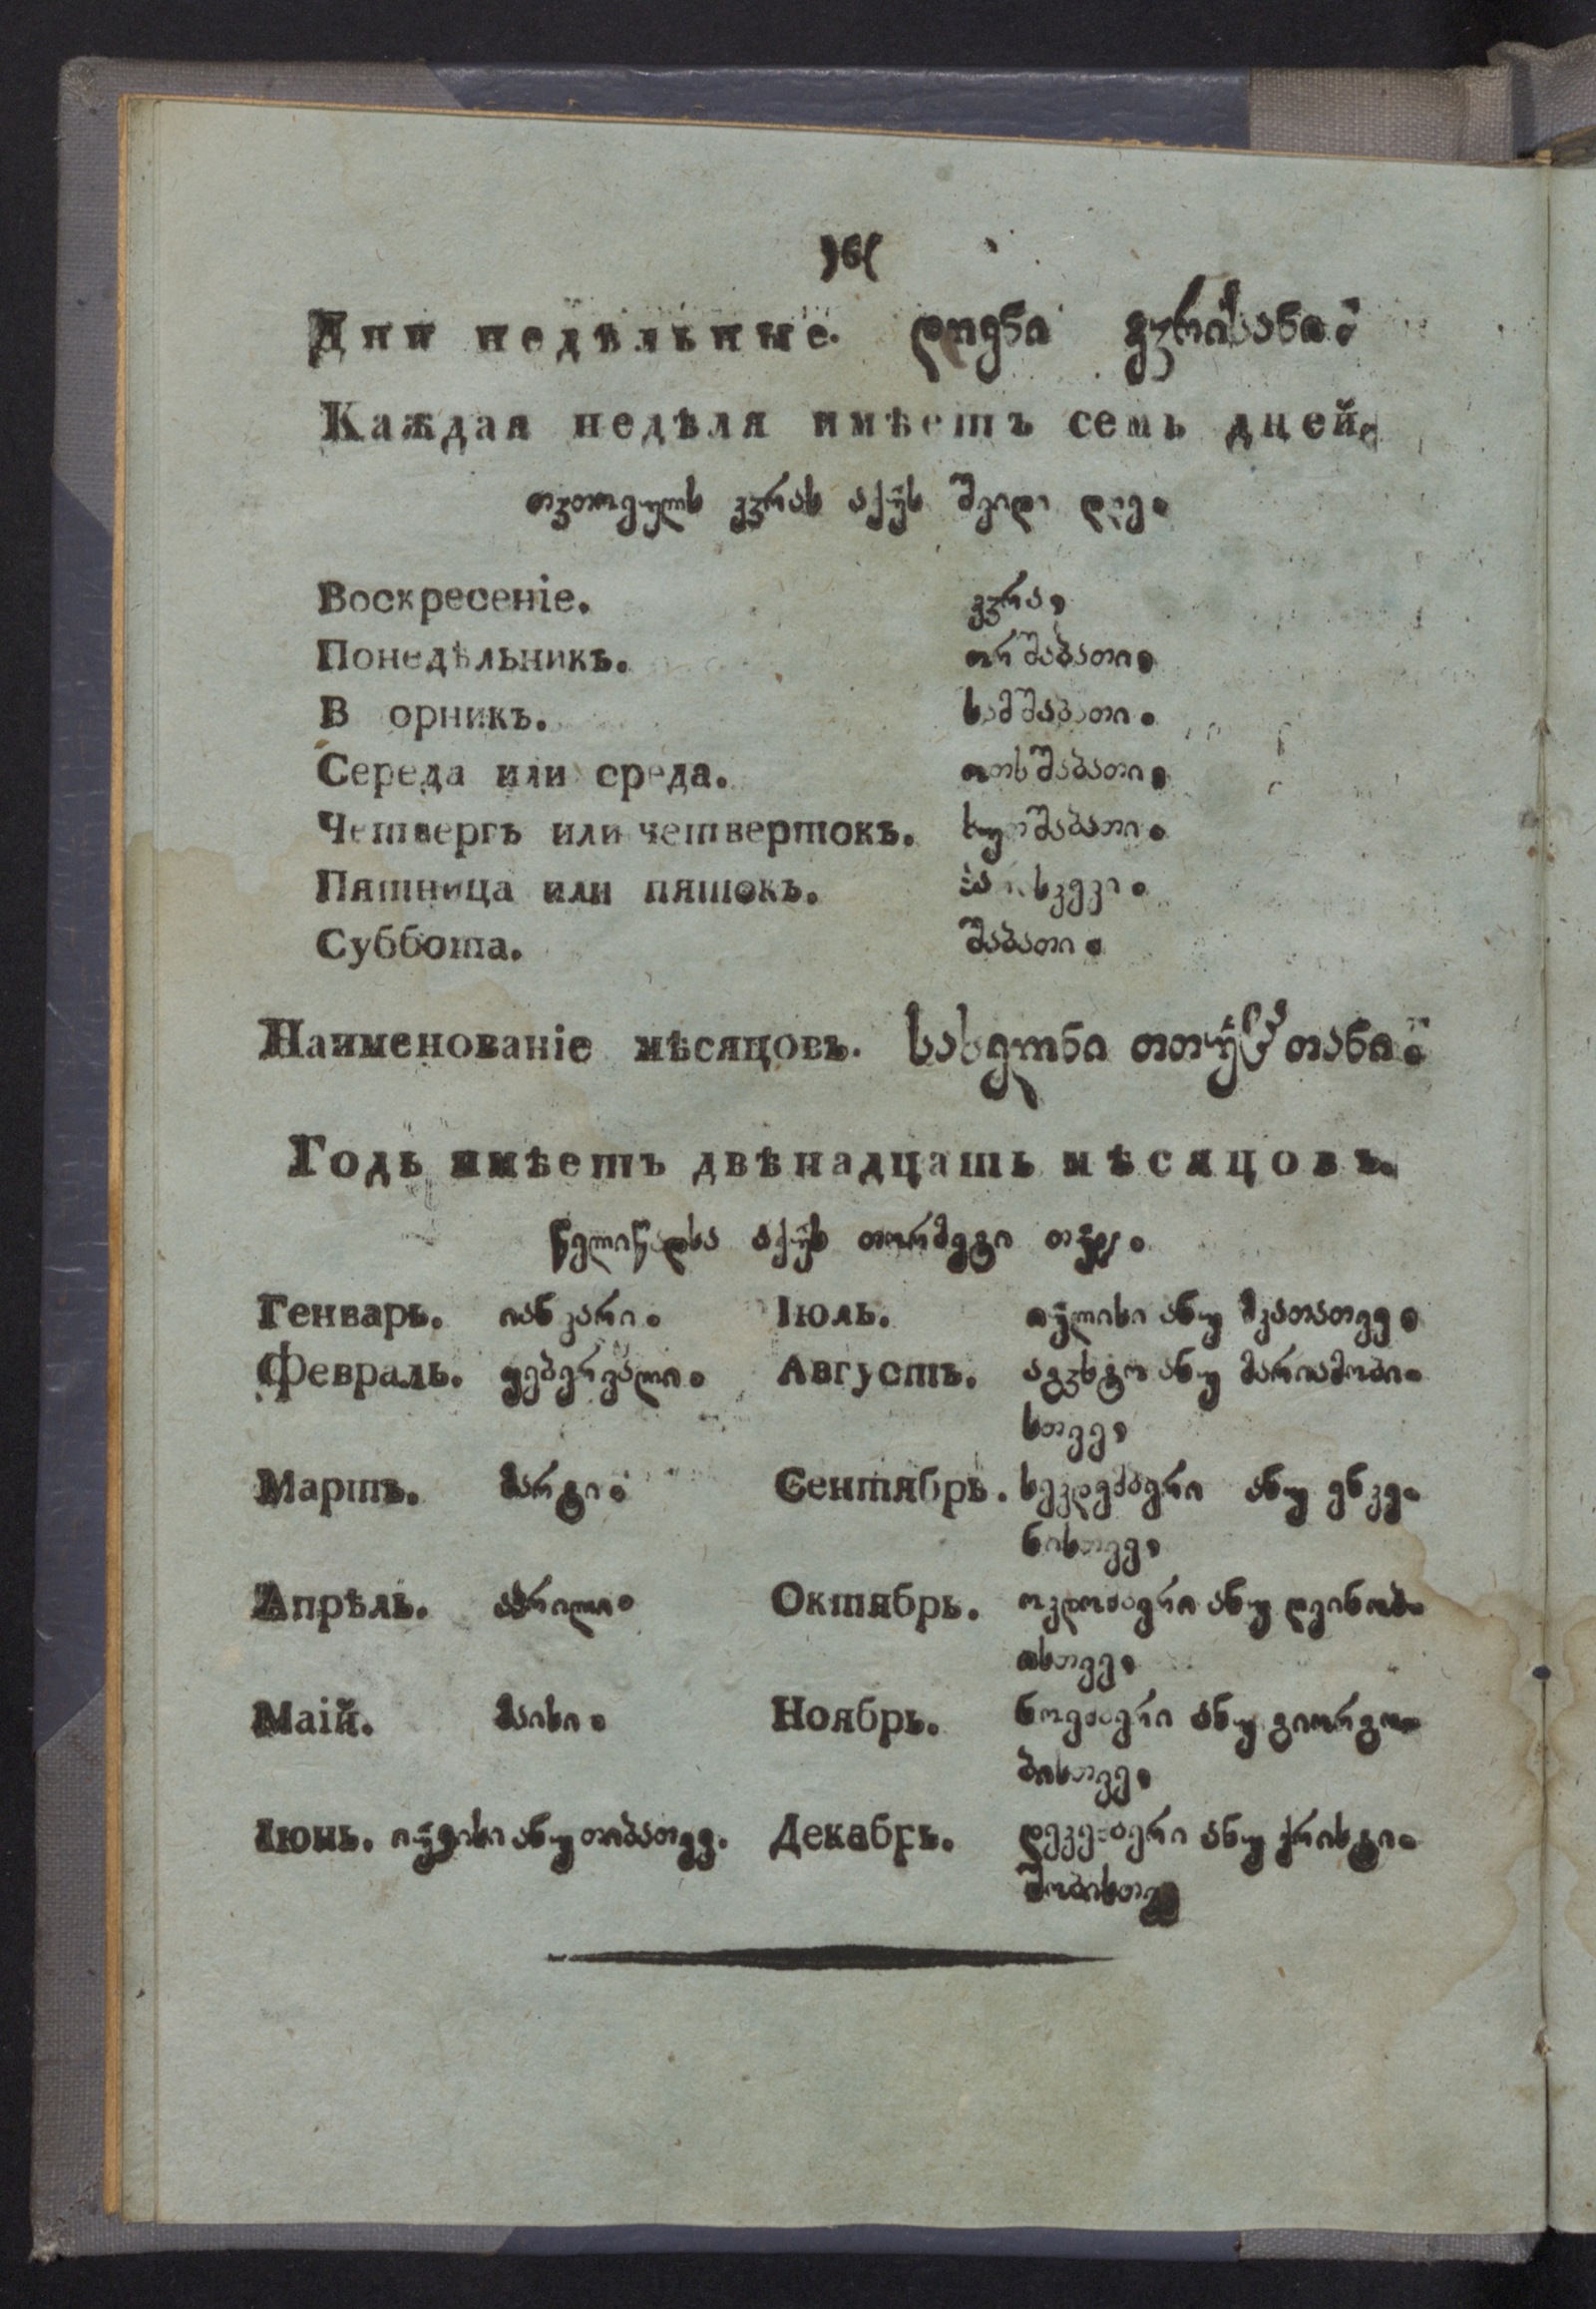 )6(
Дни недѣльные. დღენი კჳრისანი.
Каждая недѣля имѣетъ семь дней.
თჳთოეულს კჳრას აქუს შვიდი დღე.
Воскресенїе. კჳრა,
Понедѣльникъ. ორშაბათი.
В орникъ. სამშაბათი.
Середа или среда. ოთხშაბათი.
Четвергъ или четвертокъ. ხუთშაბათი.
Пятница или пятокъ. პარასკევი.
Суббота. შაბათი.
Наименованїе мѣсяцовъ. სახელნი თთუეთანი.
Годъ имѣетъ двѣнадцать мѣсяцовъ.
წელიწადსა აქუს თორმეტი თჳე.
Генварь. იანვარი. Іюль. ივლისი ანუ მკათათვე.
Февраль. ფებერვალი. Августъ. აგჳსტო ანუ მარიამობი-
სთვე,
Мартъ. მარტი. Сентябрь. სეკდემბერი ანუ ენკე-
ნისთვე,
Апрѣль. აპრილი. Октябрь. ოკდომბერი ანუ ღვინობ-
ისთვე,
Маїй. მაისი. Ноябрь. ნოემბერი ანუ გიორგო-
ბისთვე,
Іюнь. ივნისი ანუ თიბათვე. Декабрь. დეკემბერი ანუ ქრისტი-
შობისთვე